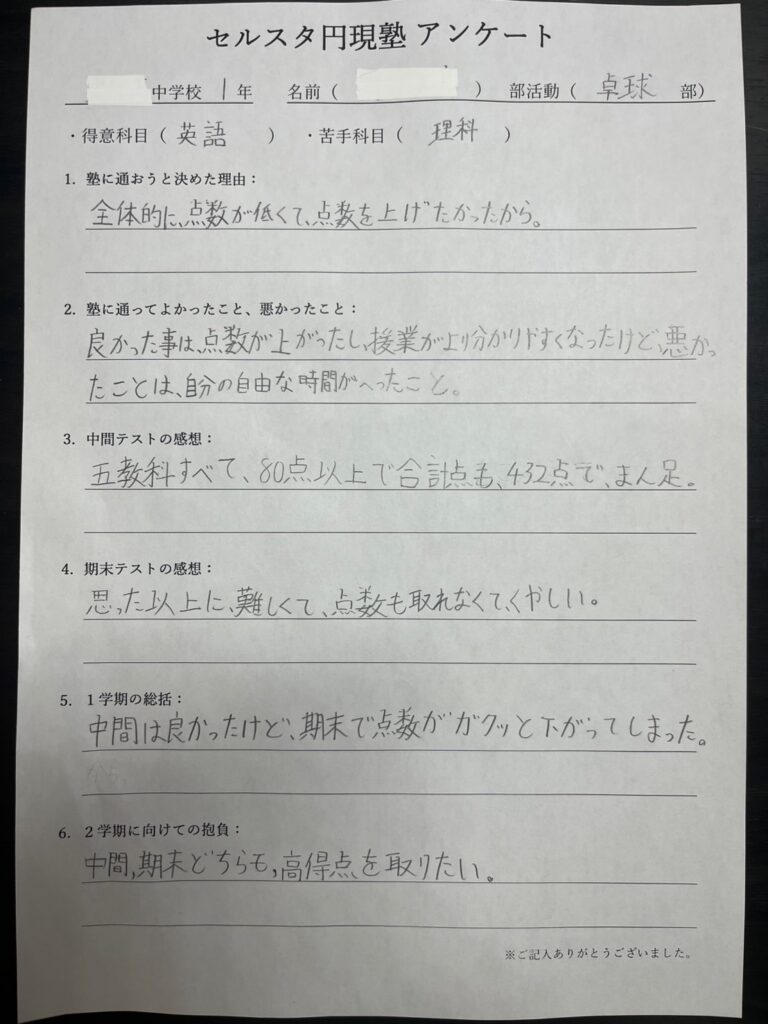 セルスタ円現塾 アンケート
中学校 1年 名前( ) 部活動( 卓球 部)
・得意科目( 英語 ) ・苦手科目( 理科 )
1. 塾に通おうと決めた理由:
全体的に、点数が低くて、点数を上げたかったから。
2. 塾に通ってよかったこと、悪かったこと:
良かった事は、点数が上がったし、授業がより分かりやすくなったけど、悪かっ
たことは、自分の自由な時間がへったこと。
3. 中間テストの感想:
五教科すべて、80点以上で合計点も、432点で、まん足。
4. 期末テストの感想:
思った以上に、難しくて、点数も取れなくて、くやしい。
5. 1学期の総括:
中間は良かったけど、期末で点数がガクッと下がってしまった。
6. 2学期に向けての抱負:
中間,期末どちらも,高得点を取りたい。
※ご記入ありがとうございました。